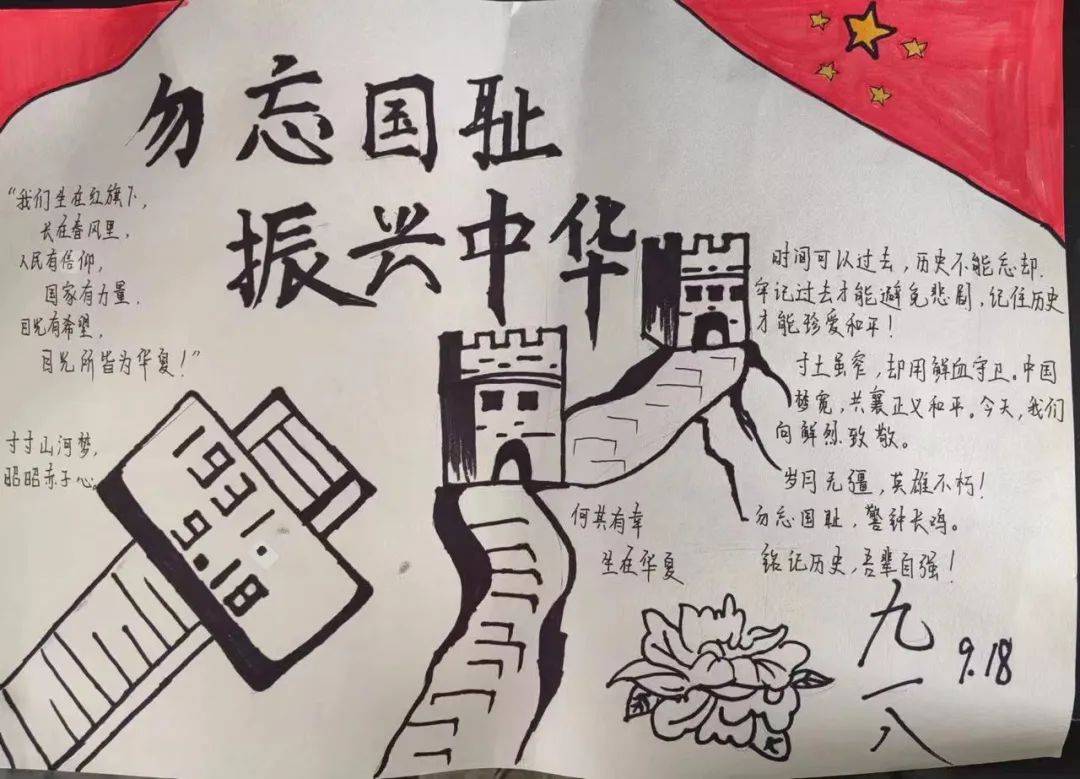 勿忘国耻
振兴中华
“我们生在红旗下，
长在春风里，
人民有信仰，
国家有力量，
目光有希望，
目光所皆为华夏！”
寸寸山河梦，
昭昭赤子心。
1931.
9.18
时间可以过去，历史不能忘却.
牢记过去才能避免悲剧，记住历史
才能珍爱和平！
寸土虽窄，却用鲜血守卫。中国
梦宽，共襄正义和平。今天，我们
向鲜烈致敬。
岁月无疆，英雄不朽！
勿忘国耻，警钟长鸣。
铭记历史，吾辈自强！
何其有幸
生在华夏
九一八
9.18